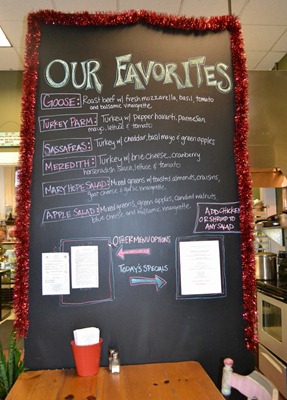 OUR FAVORITES
GOOSE: Roast beef w/ fresh mozzarella, basil, tomato
and balsamic vinaigrette
TURKEY PARM: Turkey w/ pepper havarti, parmesan
mayo, lettuce & tomato
SASSAFRAS: Turkey w/ cheddar, basil mayo & green apples
MEREDITH: Turkey w/ brie cheese, cranberry
horseradish sauce, lettuce & tomato
MARY HOPE SALAD: Mixed greens w/ toasted almonds, craisins,
goat cheese & balsamic vinaigrette
APPLE SALAD: Mixed greens, green apples, candied walnuts
blue cheese and balsamic vinaigrette
ADD CHICKEN
OR SHRIMP TO
ANY SALAD
OTHER MENU OPTIONS
TODAY'S SPECIALS